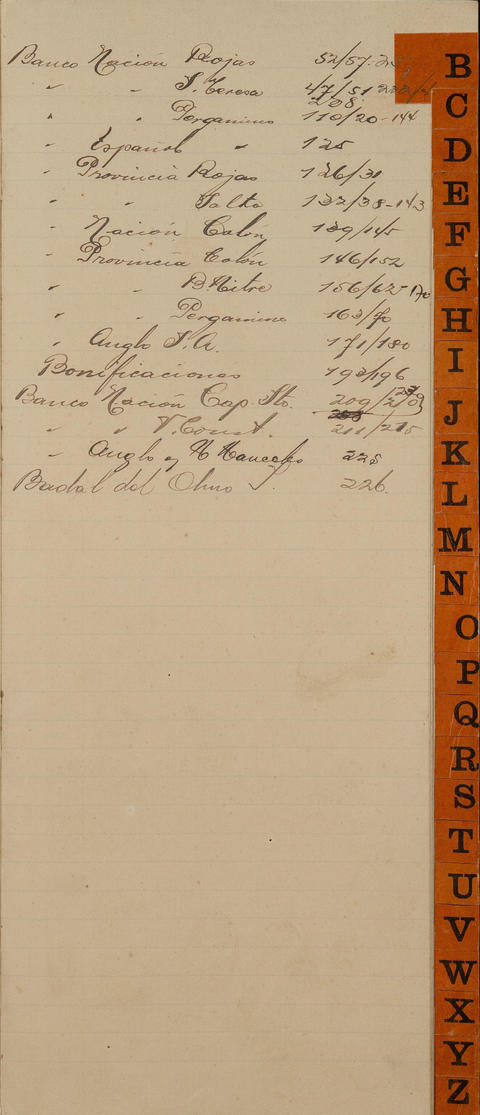 Banco Nación Rojas 52/57
" " S. Teresa 47/51
208
" " Pergamino 110/20-144
" Español " 125
" Provincia Rojas 126/31
" " Salto 132/38-143
" Nación Colón 139/145
" Provincia Colón 146/152
" " B. Mitre 156/62-170
" " Pergamino 163/70
" Anglo S.A. 171/180
Bonificaciones 193/196
Banco Nación Cap. 209/
" " V. Const. 211/215
" Anglo y 225
Badal del 226
B
C
D
E
F
G
H
I
J
K
L
M
N
O
P
Q
R
S
T
U
V
W
X
Y
Z